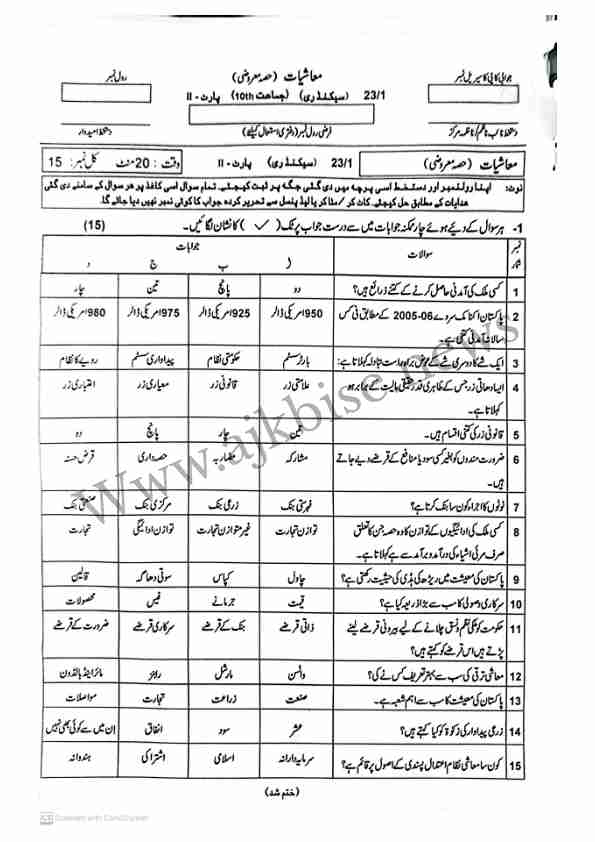 جوابی کاپی کا سیریل نمبر
معاشیات (حصہ معروضی)
رول نمبر
23/1 (سیکنڈری) (جماعت 10th) پارٹ - II
دستخط نائب ناظم/ناظمہ مرکز
فرضی رول نمبر (دفتری استعمال کیلئے)
دستخط امیدوار
معاشیات (حصہ معروضی) 23/1 (سیکنڈری) پارٹ - II وقت: 20 منٹ کل نمبر: 15
نوٹ: اپنا رولنمبر اور دستخط اسی پرچہ میں دی گئی جگہ پر ثبت کیجئے۔ تمام سوال اسی کاغذ پر ھر سوال کے سامنے دی گئی
ھدایات کے مطابق حل کیجئے۔ کاٹ کر / مٹا کر یا لیڈ پنسل سے تحریر کردہ جواب کا کوئی نمبر نہیں دیا جائے گا۔
1- ہر سوال کے دیئے ہوئے چار ممکنہ جوابات میں سے درست جواب پر ٹک ( ✓ ) کا نشان لگائیں۔ (15)
نمبر شمار سوالات جوابات
ا ب ج د
1 کسی ملک کی آمدنی حاصل کرنے کے کتنے ذرائع ہیں؟ دو پانچ تین چار
2 پاکستان اکنامک سروے 06-2005 کے مطابق فی کس 950 امریکی ڈالر 925 امریکی ڈالر 975 امریکی ڈالر 980 امریکی ڈالر
سالانہ آمدنی کتنی ہے۔
3 ایک شے کا دوسری شے کے عوض براہ راست تبادلہ کہلاتا ہے: بارٹر سسٹم حکومتی نظام پیداواری سسٹم روپے کا نظام
4 ایسا دھاتی زر جس کے ظاہری قدر حقیقی مالیت کے برابر ہو علامتی زر قانونی زر معیاری زر اعتباری زر
کہلاتا ہے۔
5 قانونی زر کی کتنی اقسام ہیں۔ تین چار پانچ دو
6 ضرورت مندوں کو بغیر کسی سود یا منافع کے قرضے دیے جاتے مشارکہ مضاربہ حصہ داری قرض حسنہ
ہیں۔
7 نوٹوں کا اجراء کون سا بنک کرتا ہے؟ فہرستی بنک زرعی بنک مرکزی بنک صنعتی بنک
8 کسی ملک کی ادائیگیوں کے توازن کا وہ حصہ جن کا تعلق توازن تجارت غیر متوازن تجارت توازن ادائیگی تجارت
صرف مرئی اشیاء کی درآمد و برآمد سے ہے کہلاتا ہے۔
9 پاکستان کی معیشت میں ریڑھ کی ہڈی کی حیثیت رکھتی ہے؟ چاول کپاس سوتی دھاگہ قالین
10 سرکاری وصولی کا سب سے بڑا ذریعہ کیا ہے؟ قیمت جرمانے فیس محصولات
11 حکومت کو ملکی نظم و نسق چلانے کے لیے بیرونی قرضے لینے ذاتی قرضے بنک کے قرضے سرکاری قرضے ضرورت کے قرضے
پڑتے ہیں اس قرضے کو کہتے ہیں؟
12 معاشی ترقی کی سب سے بہتر تعریف کس نے کی؟ واٹسن مارشل رابنز مائر اینڈ بالڈون
13 پاکستان کی معیشت کا سب سے اہم شعبہ ہے۔ صنعت زراعت تجارت مواصلات
14 زرعی پیداوار کی زکوۃ کو کیا کہتے ہیں؟ عشر سود انفاق ان میں سے کوئی بھی نہیں
15 کون سا معاشی نظام اعتدال پسندی کے اصول پر قائم ہے؟ سرمایہ دارانہ اسلامی اشتراکی ہندوانہ
(ختم شد)
www.ajkbise.news
Scanned with CamScanner